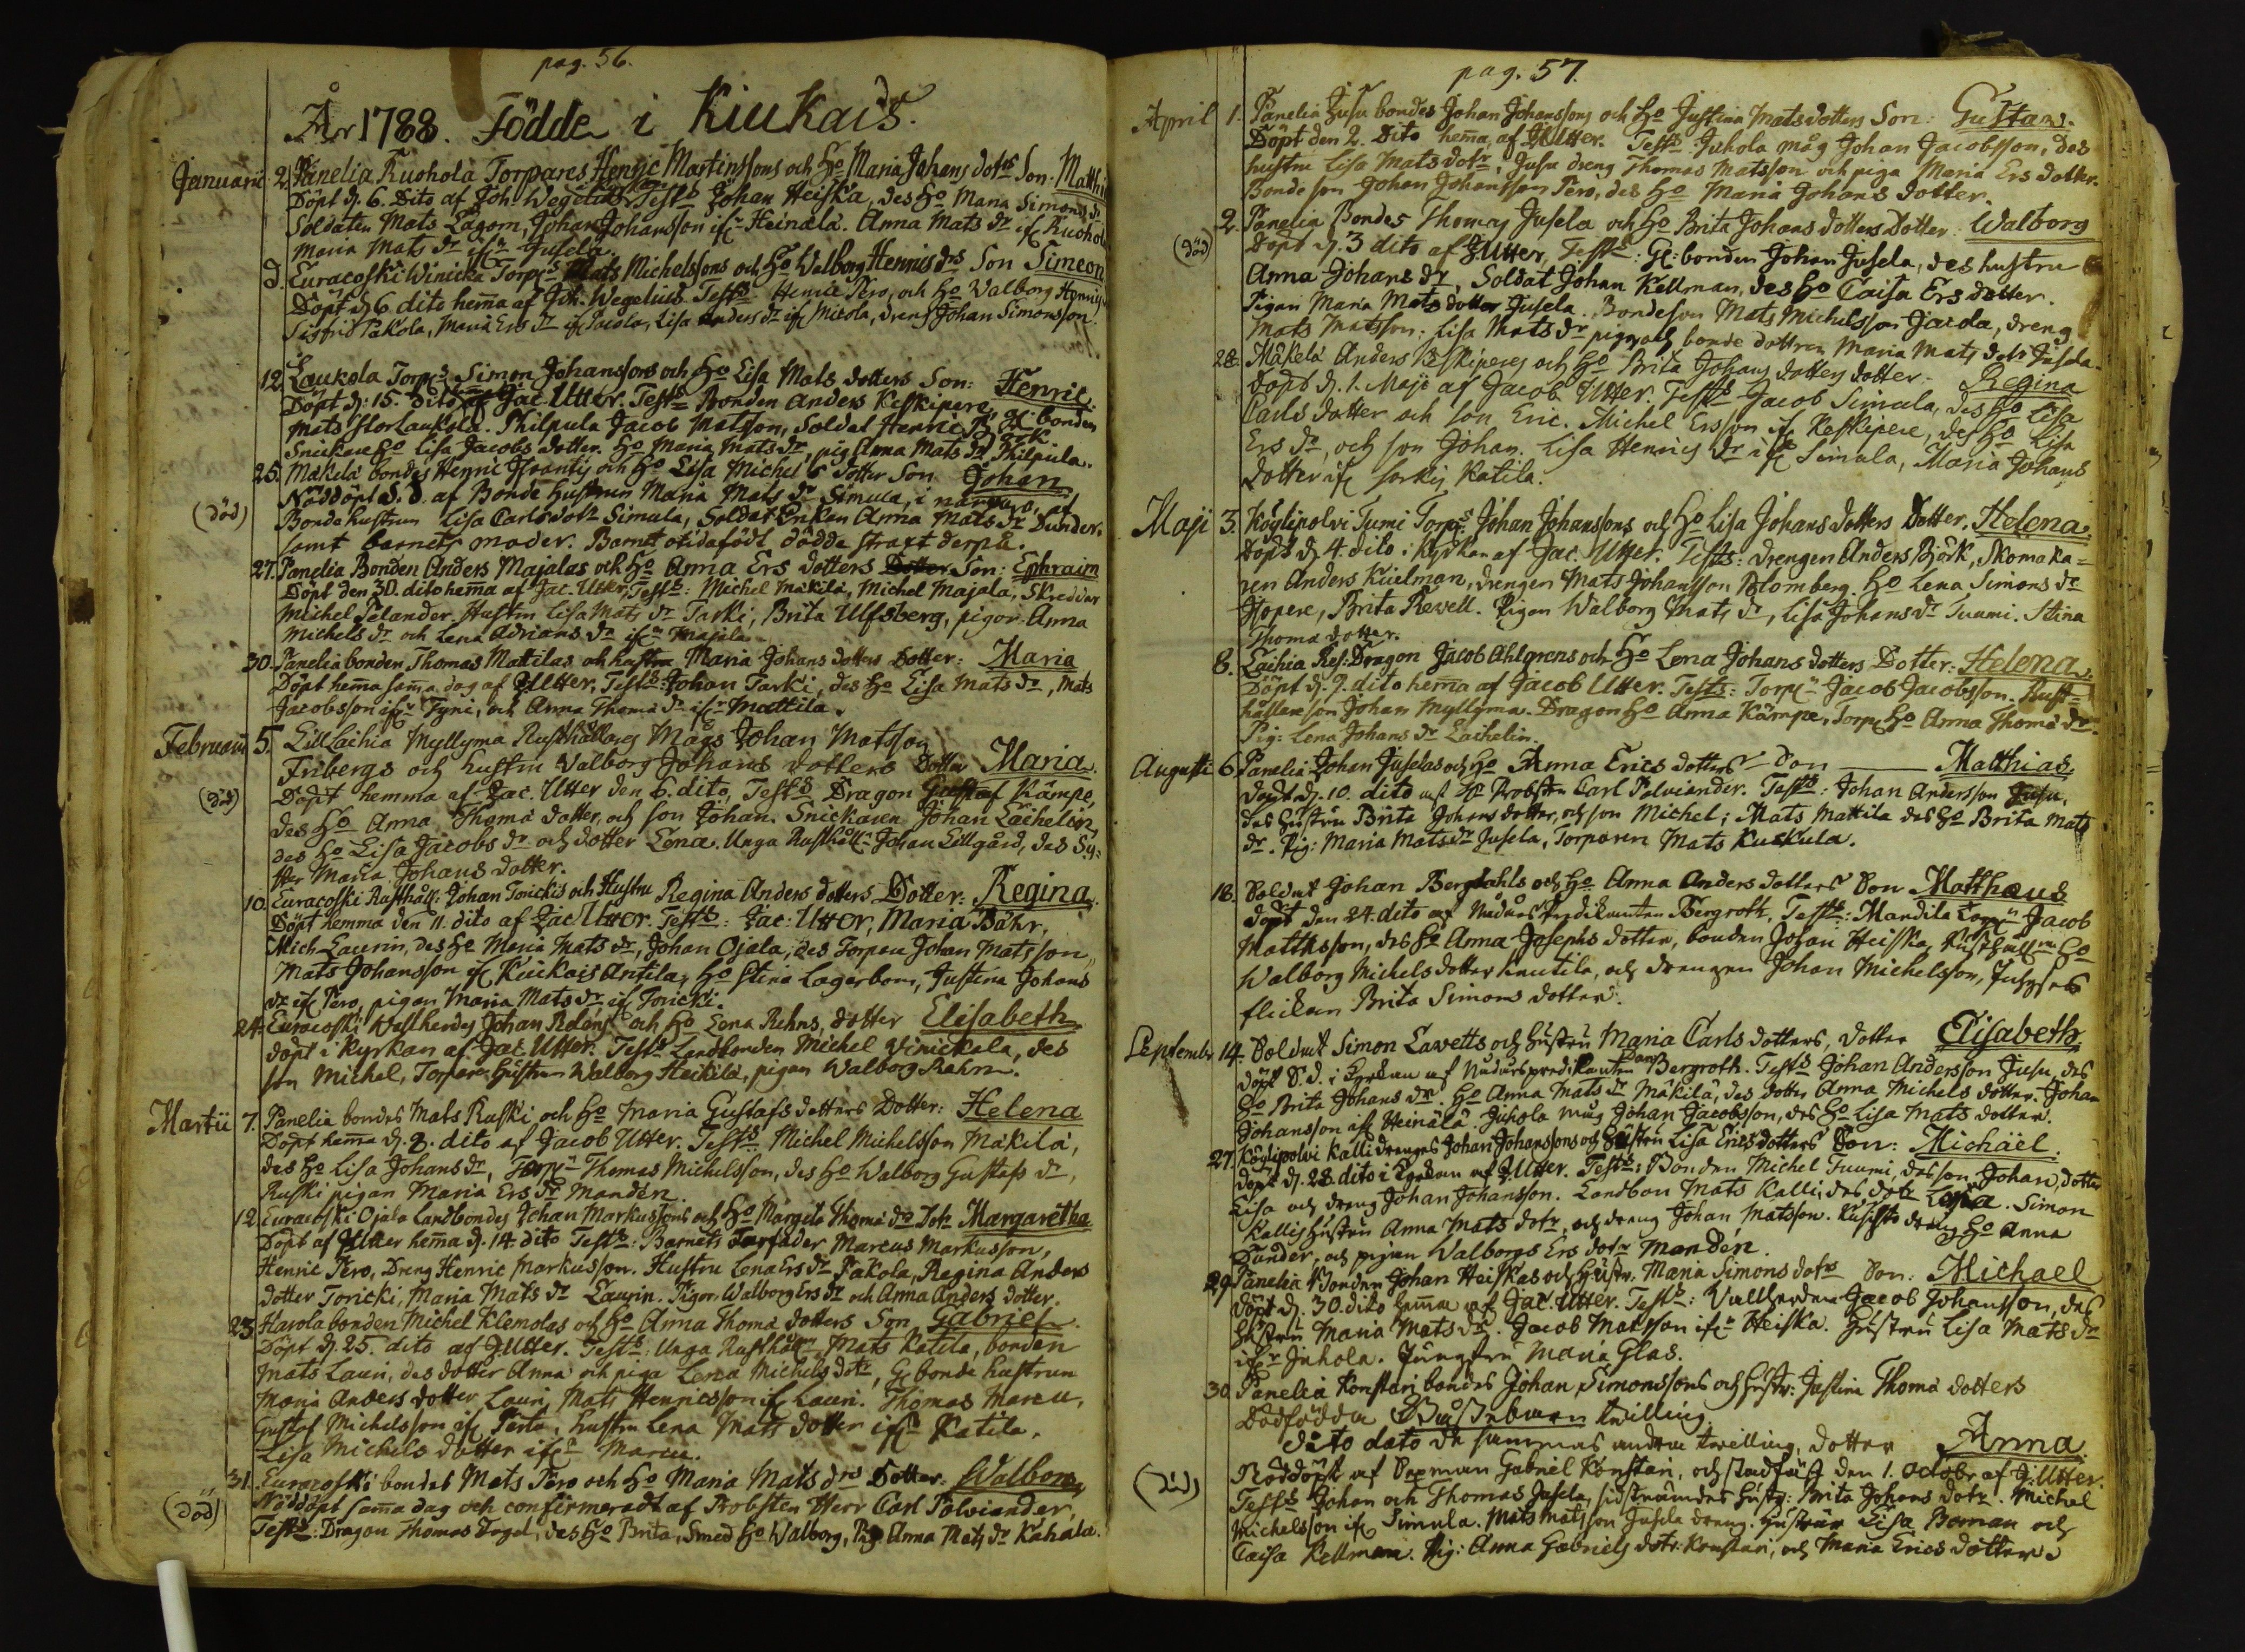 pag. 56.
År 1788. Födde i Kiukais.
Januarii 2. Panelia Kuohola Torpares Henric Martinssons och Ho Maria Johans dotrs Son. Matthi
Döpt d. 6. Dito af Joh. Wegelius Tests Johan Heiska, des Ho Maria Simons dr
Soldaten Mats Lagorn, Johan Johansson ifr Heinälä. Anna Mats dr ifr Kuohol
Maria Mats dr ifrn Jusela.
d. Euracoski Winicka Torps Mats Michelssons och Ho Walborg Henrics drs Son Simeon
Döpt d. 6 dito hema af Joh. Wegelius Tests Henric Pero, och Ho Walborg Henrics
Sigfrid Pakola, Maria Ers dr ifr Pacola, Lisa Anders dr ifr Micola, dreng Johan Simonsson.
12. Laukola Torps Simon Johanssons och Ho Lisa Mats dotters Son: Henric.
Döpt d. 15. Dito af Jac. Utter. Tests Bonden Anders Keskipere, gl: bonden
Mats Storlaukola. Philpula Jacob Matsson, Soldat Henric Berk
Snickare Ho Lisa Jacobs dotter. Ho Maria Mats dr, pig Anna Mats Dr Philpula.
25. Mäkelä bondes Henric Frantis och Ho Lisa Michels dotter Son Johan
(död) Nöddöpt S. D. af Bonde Hustrun Maria Mats dr Simula, i närvaro af
Bonde hustrun Lisa Carlsdotr Simula, Soldat Enkan Anna Mats dr Dunder.
samt barnets moder. Barnet otidafödt dödde straxt derpå.
27. Panelia Bonden Anders Majalas och Ho Anna Ers dotters Dotter Son: Ephraim
Döpt den 30. dito hema af Jac. Utter, Tests: Michel Mäkilä, Michel Majala, Skreddar
Michel Selander, Hustru Lisa Mats dr Tarki, Brita Ulfsberg, pigor Anna
Michels dr och Lena Adrians dr ifrn Majala.
30. Panelia bonden Thomas Mattilas och hustru Maria Johans dotters Dotter: Maria
Döpt hema sama dag af J Utter, Tests: Johan Tarki, des Ho Lisa Mats dr, Mats
Jacobsson ifrn Tyni, och Anna Thoma dr ifrn Mattila.
Februarii 5. Lill Laihia Myllyma Rusthållares Mågs Johan Matsson
Fribergs och hustru Walborg Johans dotters Dotter Maria.
(död) Döpt hemma af Jac. Utter den 6. dito, Tests Dragon Gustaf Kämpe,
des Ho Anna Thoma dotter, och son Johan. Snickaren Johan Lachelin,
des Ho Lisa Jacobs dr och dotter Lena. Unga Rusthålln Johan Lillgård, des Sy-
ster Maria Johans dotter.
10. Euracoski Rusthåll: Johan Torickis och Hustru Regina Anders dotters Dotter: Regina.
Döpt hemma den 11. dito af Jac Utter. Tests: Jac: Utter, Maria Bähr,
Mich Laurin, des Ho Maria Mats dr, Johan Ojala, des Torpare Johan Matsson,
Mats Johansson ifr Kiukais Antila, Ho Stina Lagerbom, Justina Johans
dr ifr Pero, pigan Maria Mats dr ifr Toricki.
24. Euracoski Wallherdes Johan Relens och Ho Lena Rehns, dotter Elisabeth.
döpt i Kyrkan af Jac. Utter. Tests Landbonden Michel Vinickala, des
son Michel, Torpare hustrun Walborg Heikilä, pigan Walborg Rehn.
Martii 7. Panelia bondes Mats Ruski och Ho Maria Gustafs dotters Dotter: Helena
Döpt hema d. 8. dito af Jacob Utter. Tests Michel Michelsson Mäkilä,
des Ho Lisa Johans dr, Torpn Thomas Michelsson, des Ho Walborg Gustafs dr,
Ruski pigan Maria Ers dr Mandén.
12. Euracoski Ojala Landbondes Johan Markussons och Ho Margeta Thoma drs Dotr Margaretha
Döpt af J Utter hema d. 14. dito Tests: Barnets Farfader Marcus Markusson,
Henric Pero, Dreng Henric Markusson. Hustru Lena Ers dr Pakola, Regina Anders
dotter Toricki, Maria Mats dr Laurin. Pigor Walborg Ers dr och Anna Anders dotter.
23. Harola bonden Michel Klemolas och Ho Anna Thoma dotters Son Gabriel.
Döpt d. 25. dito af J Utter. Tests: Unga Rusthålln Mats Katila, bonden
Mats Lauri, des dotter Anna och piga Lena Michels dotr, Gl bonde hustrun
Maria Anders dotter Lauri, Mats Henricsson ifr Lauri. Thomas Marcu,
Gustaf Michelsson ifr Perta, hustru Lena Mats dotter ifrn Katila,
Lisa Michels dotter ifrn Marcu.
31. Euracoski bondes Mats Pero och Ho Maria Mats drs Dotter: Walborg
(död) Nöddöpt sama dag och confirmeradt af Probsten Herr Carl Polviander,
Tests: Dragon Thomas Dogel, des Ho Brita, Smed Ho Walborg, Pig. Anna Mats dr Kahala.
pag. 57.
April 1. Panelia Jusu bondes Johan Johanssons och Ho Justina Mats dotters Son: Gustav.
Döpt den 2. Dito hema, af J Utter. Tests Juhola måg Johan Jacobsson, des
hustru Lisa Mats dotr, Jusu dreng Thomas Matsson och piga Maria Ers dotter.
Bonde son Johan Johansson Pero, des Ho Maria Johans dotter.
2. Panelia Bondes Thomas Jusela och Ho Brita Johans dotters Dotter: Walborg
(död) Döpt d. 3 dito af J Utter, Tests: Gl: bonden Johan Jusela, des hustru
Anna Johans dr, Soldat Johan Kellman, des Ho Caisa Ers dotter.
Pigan Maria Mats dotter Jusela. Bondeson Mats Michelsson Jacola, dreng
Mats Matsson. Lisa Mats dr piga, och bonde dottren Maria Mats dotr Jusela.
28. Mäkelä Anders Keskiperes och Ho Brita Johans dotters dotter - Regina
Döpt d. 1. Maji af Jacob Utter. Tests Jacob Simula, des Ho Lisa
Carls dotter och son Eric. Michel Ersson ifr Keskipere, des Ho Lisa
Ers dr, och son Johan. Lisa Henrics dr ifr Simula, Maria Johans
dotter ifr Sorkis Katila.
Maji 3. Köylipolvi Tumi Torps Johan Johanssons och Ho Lisa Johans dotters Dotter. Helena.
Döpt d. 4. dito i Kyrkan af Jac. Utter. Tests: drengen Anders Björk, Skomaka=
ren Anders Kuelman, drengen Mats Johansson Blomberg. Ho Lena Simons dr
Isopere, Brita Revell. Pigan Walborg Mats dr, Lisa Johans dr Tuumi. Stina
Thoma dotter.
8. Laihia Res: Dragon Jacob Ahlgrens och Ho Lena Johans dotters Dotter: Helena.
Döpt d. 9. dito hema af Jacob Utter. Tests: Torpn Jacob Jacobsson. Rust=
hållare son Johan Myllyma. Dragon Ho Anna Kämpe, Torp Ho Anna Thoma dr.
Pig: Lena Johans dr Lachelin.
Augusti 6. Panelia Johan Juselas och Ho Anna Erics dotters Son Matthias.
döpt d. 10. dito af Hr Probsten Carl Polviander. Tests: Johan Andersson Jusu,
des hustru Brita Johans dotter, och son Michel; Mats Mattila des Ho Brita Mats
dr. Pig: Maria Mats dr Jusela, Torparen Mats Kuckula.
18. Soldat Johan Bergdahls och Ho Anna Anders dotters Son Matthæus
döpt den 24. dito af Nådårs Predikanten Bergroth, Tests: Mandila Torpn Jacob
Mattsson, des Ho Anna Josephs dotter, bonden Johan Heiska, Rusthålln Ho
Walborg Michels dotter Knutila, och drengen Johan Michelsson,
flickan Brita Simons dotter.
Septembr 14. Soldat Simon Lavetts och Hustru Maria Carls dotters, dotter Elisabeth.
döpt S. d. i Kyrkan af Nådårspredikanten Bergroth. Tests Johan Andersson Jusu, des
Ho Brita Johans dr. Ho Anna Mats dr Mäkilä, des dotter Anna Michels dotter. Johan
Johansson ifr Heinälä. Juhola måg Johan Jacobsson, des Ho Lisa Mats dotter.
27. Köylipolvi Kalli drenges Johan Johanssons och Hustru Lisa Erics dotters Son: Michäel.
döpt d. 28. dito i Kyrkan af J Utter. Tests: Bonden Michel Tuumi, des son Johan, dotter
Lisa och dreng Johan Johansson. Landbon Mats Kalli, des dotr Lisa. Simon
Kallis hustru Anna Mats dotr, och dreng Johan Matsson. dreng Ho Anna
Dunder, och pigan Walborg Ers dotr Mandén.
29. Panelia Bonden Johan Heiskas och Hustr: Maria Simons dotrs Son: Michael
döpt d. 30. dito hema af Jac. Utter. Tests: Vallherden Jacob Johansson, des
hustru Maria Mats dr. Jacob Matsson ifrn Heiska. hustru Lisa Mats dr
ifrn Juhola. Jungfru Maria Glas.
30. Panelia Konstari bondes Johan Simonssons och hustr: Justina Thoma dotters
Dödfödda Gossebarn twilling.
dito dato de sammas andra twilling, dotter Anna.
(död) Nöddöpt af Sexman Gabriel Konstari, och stadfäst den 1. Octobr af J: Utter.
Tests Johan och Thomas Jusela, sidstnämdes hustr: Brita Johans dotr. Michel
Michelsson ifr Simula. Mats Matsson Jusela dreng. hustrur Lisa Boman och
Caisa Kellman. Pig: Anna Gabriels dotr: Konstari, och Maria Erics dotter